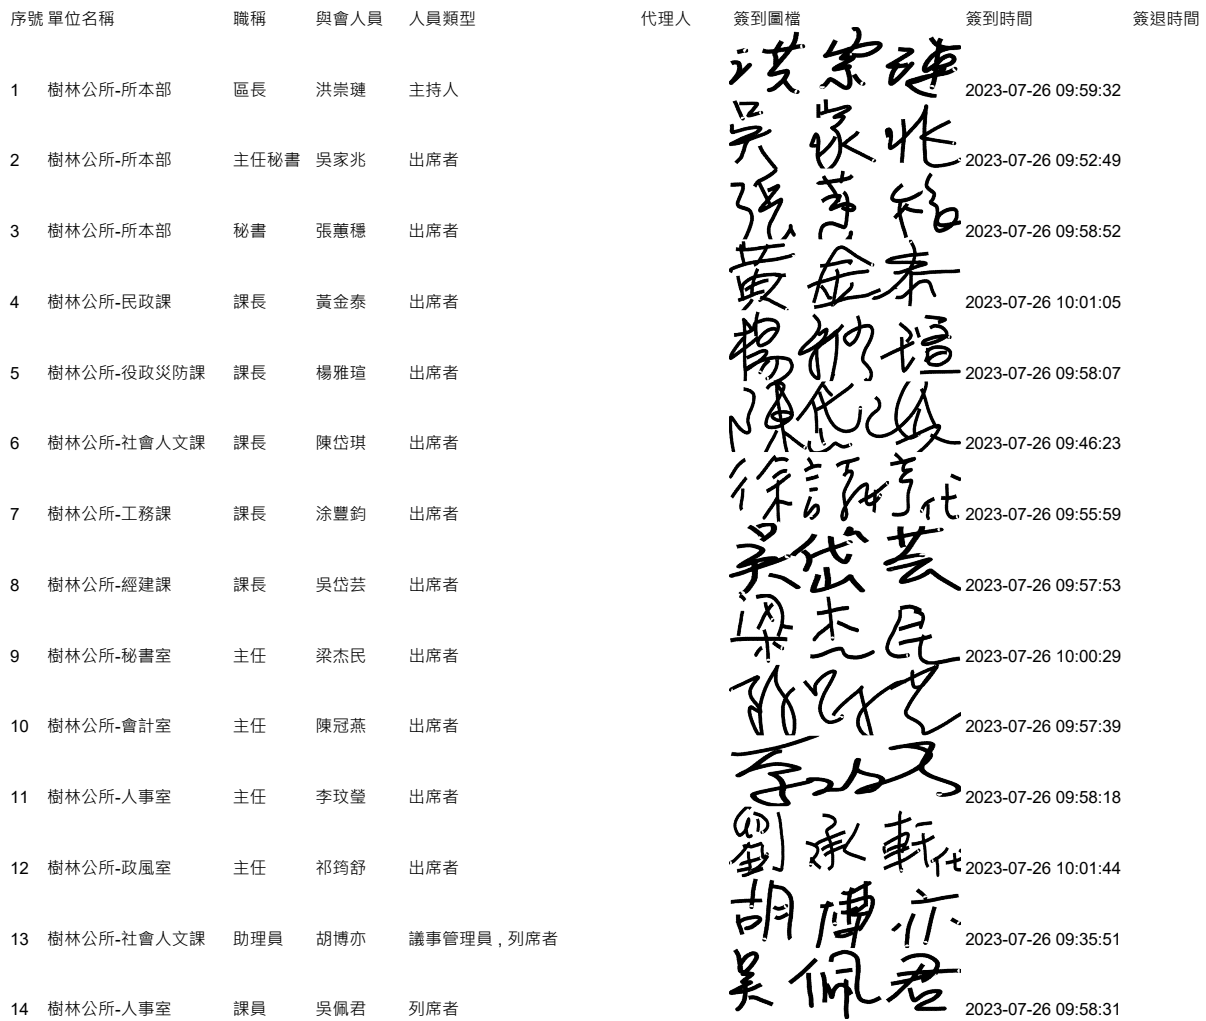 序號 單位名稱 職稱 與會人員 人員類型 代理人 簽到圖檔 簽到時間 簽退時間
1 樹林公所-所本部 區長 洪崇璉 主持人 洪崇璉 2023-07-26 09:59:32
2 樹林公所-所本部 主任秘書 吳家兆 出席者 吳家兆 2023-07-26 09:52:49
3 樹林公所-所本部 秘書 張蕙穩 出席者 張 2023-07-26 09:58:52
4 樹林公所-民政課 課長 黃金泰 出席者 黃金泰 2023-07-26 10:01:05
5 樹林公所-役政災防課 課長 楊雅瑄 出席者 楊雅瑄 2023-07-26 09:58:07
6 樹林公所-社會人文課 課長 陳岱琪 出席者 陳 2023-07-26 09:46:23
7 樹林公所-工務課 課長 涂豐鈞 出席者 徐 代 2023-07-26 09:55:59
8 樹林公所-經建課 課長 吳岱芸 出席者 吳岱芸 2023-07-26 09:57:53
9 樹林公所-秘書室 主任 梁杰民 出席者 梁杰民 2023-07-26 10:00:29
10 樹林公所-會計室 主任 陳冠燕 出席者 2023-07-26 09:57:39
11 樹林公所-人事室 主任 李玟瑩 出席者 李 2023-07-26 09:58:18
12 樹林公所-政風室 主任 祁筠舒 出席者 劉承軒代 2023-07-26 10:01:44
13 樹林公所-社會人文課 助理員 胡博亦 議事管理員 , 列席者 胡博亦 2023-07-26 09:35:51
14 樹林公所-人事室 課員 吳佩君 列席者 吳佩君 2023-07-26 09:58:31